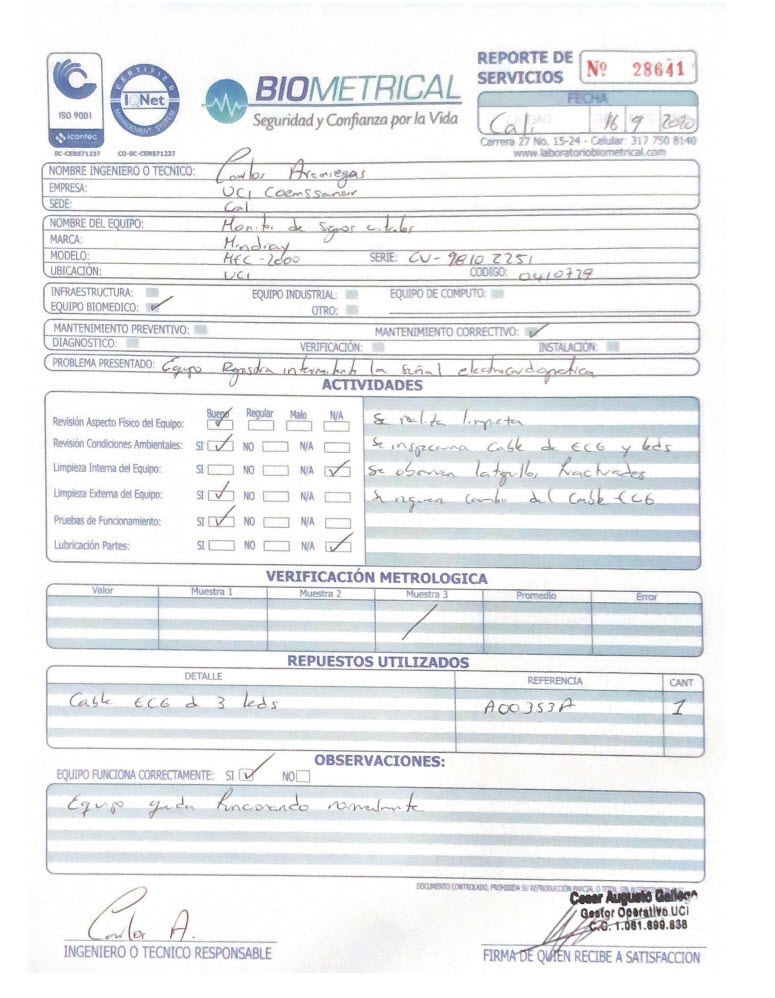 ISO 9001
icontec
SC-CER571237
CERTIFIED
IQNet
MANAGEMENT SYSTEM
CO-SC-CER571237
BIOMETRICAL
Seguridad y Confianza por la Vida
REPORTE DE SERVICIOS Nº 28641
FECHA
Cali 16 9 2020
Carrera 27 No. 15-24 - Celular: 317 750 8140
www.laboratoriobiometrical.com
NOMBRE INGENIERO O TECNICO: Carlos Arciniegas
EMPRESA: UCI
SEDE: Cali
NOMBRE DEL EQUIPO: Monitor de signos vitales
MARCA: Mindray
MODELO: MEC-2000 SERIE: CU-98102251
UBICACIÓN: UCI CODIGO: 0410729
INFRAESTRUCTURA: EQUIPO INDUSTRIAL: EQUIPO DE COMPUTO:
EQUIPO BIOMEDICO: ✓ OTRO:
MANTENIMIENTO PREVENTIVO: MANTENIMIENTO CORRECTIVO: ✓
DIAGNOSTICO: VERIFICACIÓN: INSTALACIÓN:
PROBLEMA PRESENTADO: Equipo Registra intermitente la señal electrocardiografica
ACTIVIDADES
Bueno Regular Malo N/A
Revisión Aspecto Físico del Equipo: ✓
Revisión Condiciones Ambientales: SI ✓ NO N/A
Limpieza Interna del Equipo: SI NO N/A ✓
Limpieza Externa del Equipo: SI ✓ NO N/A
Pruebas de Funcionamiento: SI ✓ NO N/A
Lubricación Partes: SI NO N/A ✓
Se realiza limpieza
Se inspecciona cable de ECG y leds
Se observan latiguillos fracturados
Se requiere cambio del cable ECG
VERIFICACIÓN METROLOGICA
Valor Muestra 1 Muestra 2 Muestra 3 Promedio Error
REPUESTOS UTILIZADOS
DETALLE REFERENCIA CANT
Cable ECG d 3 leds A00353A 1
OBSERVACIONES:
EQUIPO FUNCIONA CORRECTAMENTE: SI ✓ NO
Equipo queda funcionando normalmente
DOCUMENTO CONTROLADO, PROHIBIDA SU REPRODUCCIÓN PARCIAL O TOTAL
Cesar Augusto Gallego
Gestor Operativo UCI
C.C. 1.061.699.838
Carlos A.
INGENIERO O TECNICO RESPONSABLE
FIRMA DE QUIEN RECIBE A SATISFACCION